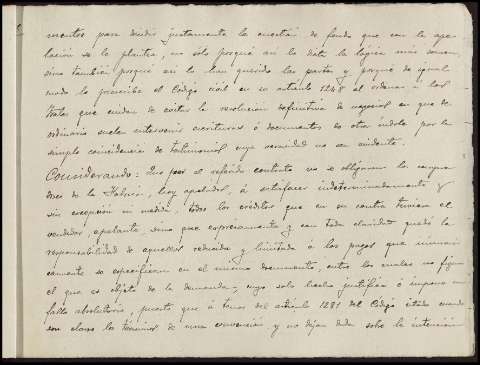 mentos para decidir justamente la cuestión de fondo que con la ape-
lación se le plantea, no solo porqué así lo dicta la lógica más sana,
sino también porqué así lo han querido las partes y porqué de igual
modo lo prescribe el Código civil en su artículo 1248 al ordenar á los
que cuiden de evitar la resolución definitiva de negocios en que de
ordinario suelen intervenir escrituras ó documentos de otra índole por la
simple coincidencia de testimonios cuya veracidad no sea evidente.
Considerando: Que por el referido contrato no se obligaron los compra
dores de la Fábrica, hoy apelados, á satisfacer indeterminadamente y
sin excepción ni medida, todos los créditos que en su contra tuviera el
vendedor, apelante, sino que expresamente y con toda claridad quedó la
responsabilidad de aquellos reducida y limitada á los pagos que
camente se especifican en el mismo documento, entre los cuales no figura
el que es objeto de la demanda; cuyo solo hecho justifica é impone un
fallo absolutorio, puesto que á tenor del artículo 1281 del Código citado cuando
son claros los términos de una convención y no dejan duda sobre la intención